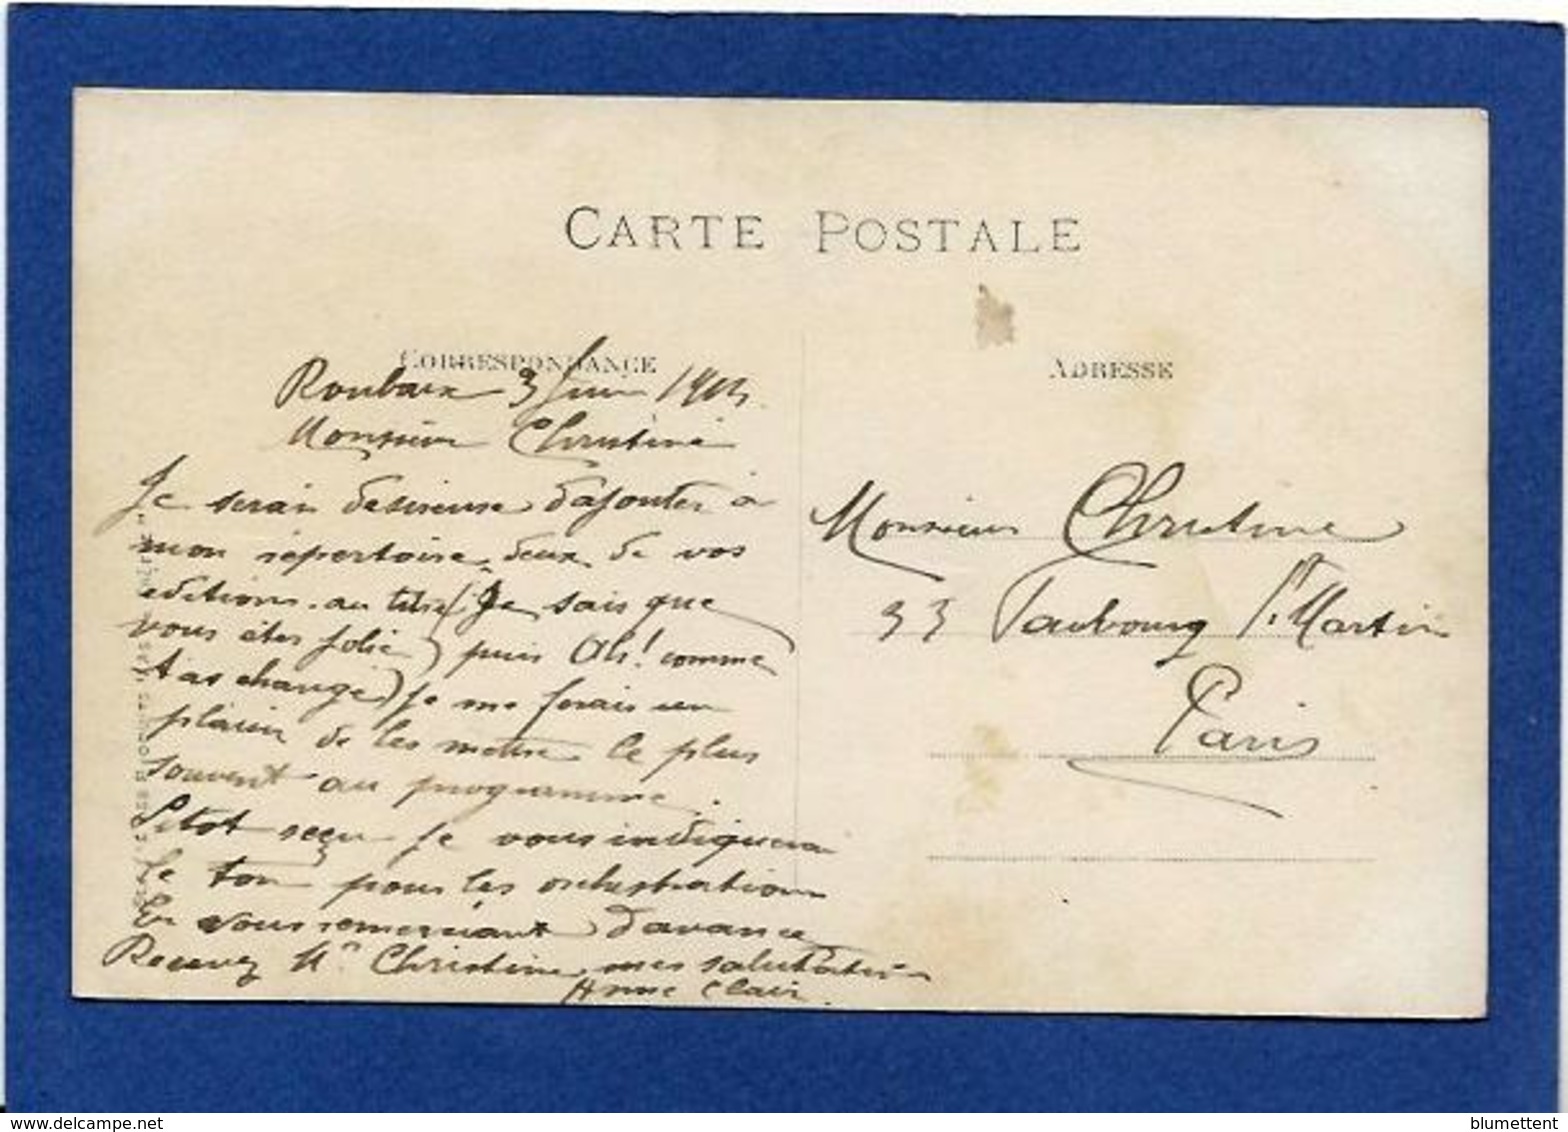 CARTE POSTALE
CORRESPONDANCE
ADRESSE
Roubaix 3 Juin
Monsieur Christiné
Je serai desireuse d'ajouter à
mon répertoire deux de vos
editions au titre (Je sais que
vous êtes jolie) puis Oh! comme
t as changé) je me ferais un
plaisir de les mettre le plus
souvent au programme.
Sitot reçu je vous indiquerai
le ton pour les orchestrations
En vous remerciant d'avance
Recevez Mr Christiné mes salutations
Anne Clair.
Monsieur Christiné
33 Faubourg St Martin
Paris
blumettent